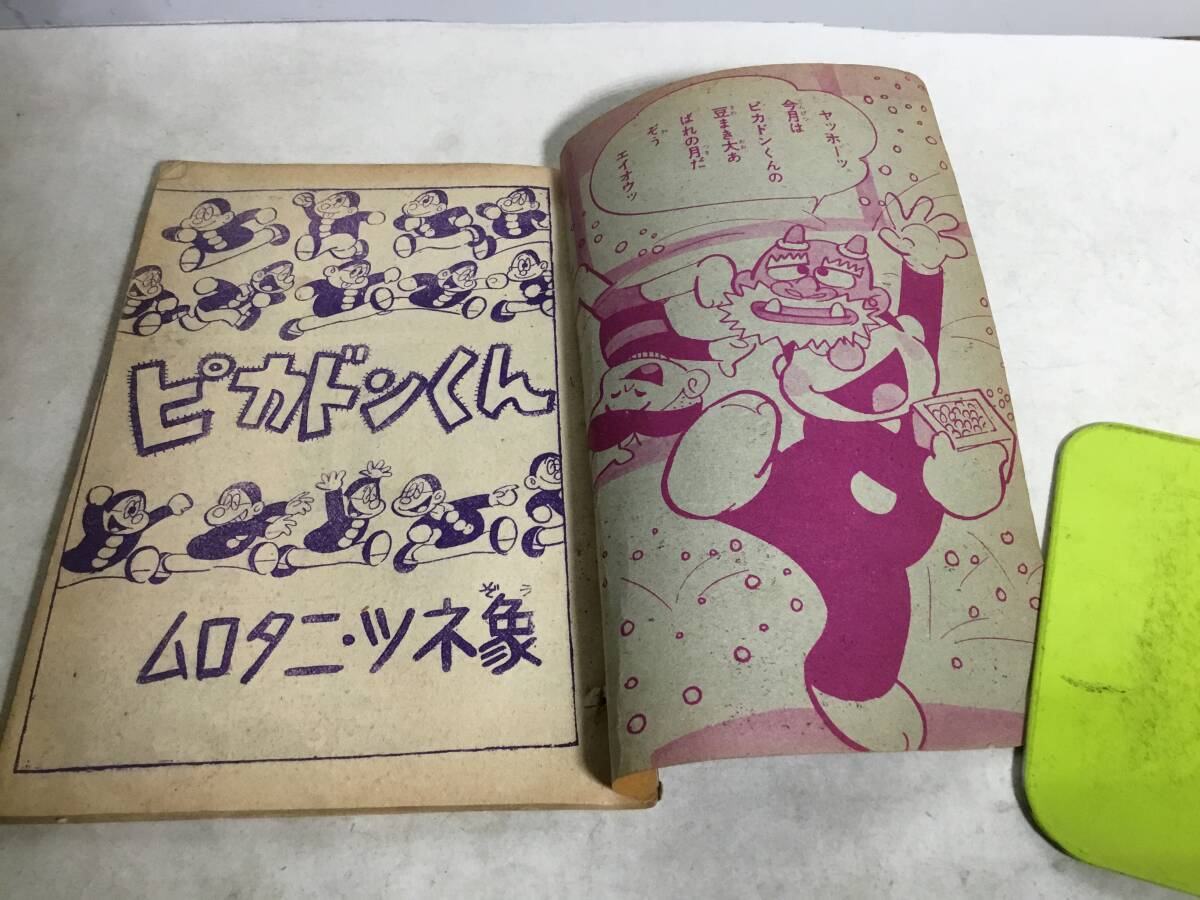 ピカドンくん
ムロタニ・ツネ象
ぞう
ヤッホーッ
今月は
ピカドンくんの
豆まき大あ
ばれの月だ
ぞう
エイオウッ